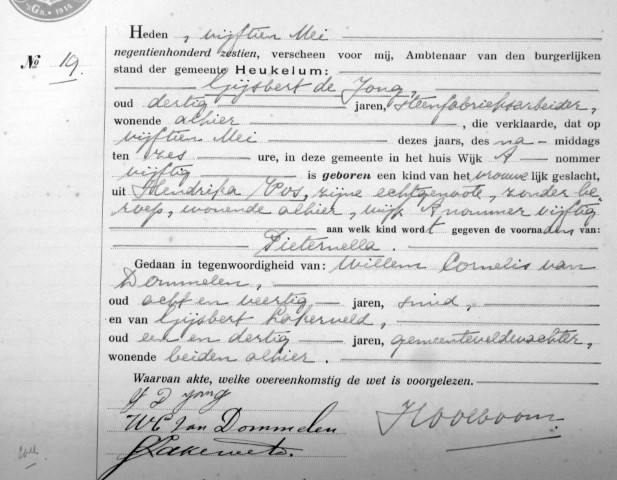 Heden, vijftien Mei
negentienhonderd zestien, verscheen voor mij, Ambtenaar van den burgerlijken
No 19. stand der gemeente Heukelum:
Gijsbert de Jong,
oud dertig jaren, steenfabrieksarbeider,
wonende alhier, die verklaarde, dat op
vijftien Mei dezes jaars, des na-middags
ten zes ure, in deze gemeente in het huis Wijk A nommer
vijftig is geboren een kind van het vrouwelijk geslacht,
uit Hendrika Vos, zijne echtgenoote, zonder be-
roep, wonende alhier, wijk A nommer vijftig
aan welk kind wordt gegeven de voornaden van:
Pieternella.
Gedaan in tegenwoordigheid van: Willem Cornelis van
Dommelen,
oud acht en veertig jaren, smid,
en van Gijsbert Lakerveld,
oud een en dertig jaren, gemeenteveldwachter,
wonende beiden alhier.
Waarvan akte, welke overeenkomstig de wet is voorgelezen.
G D Jong
W C van Dommelen
GLakervelt.